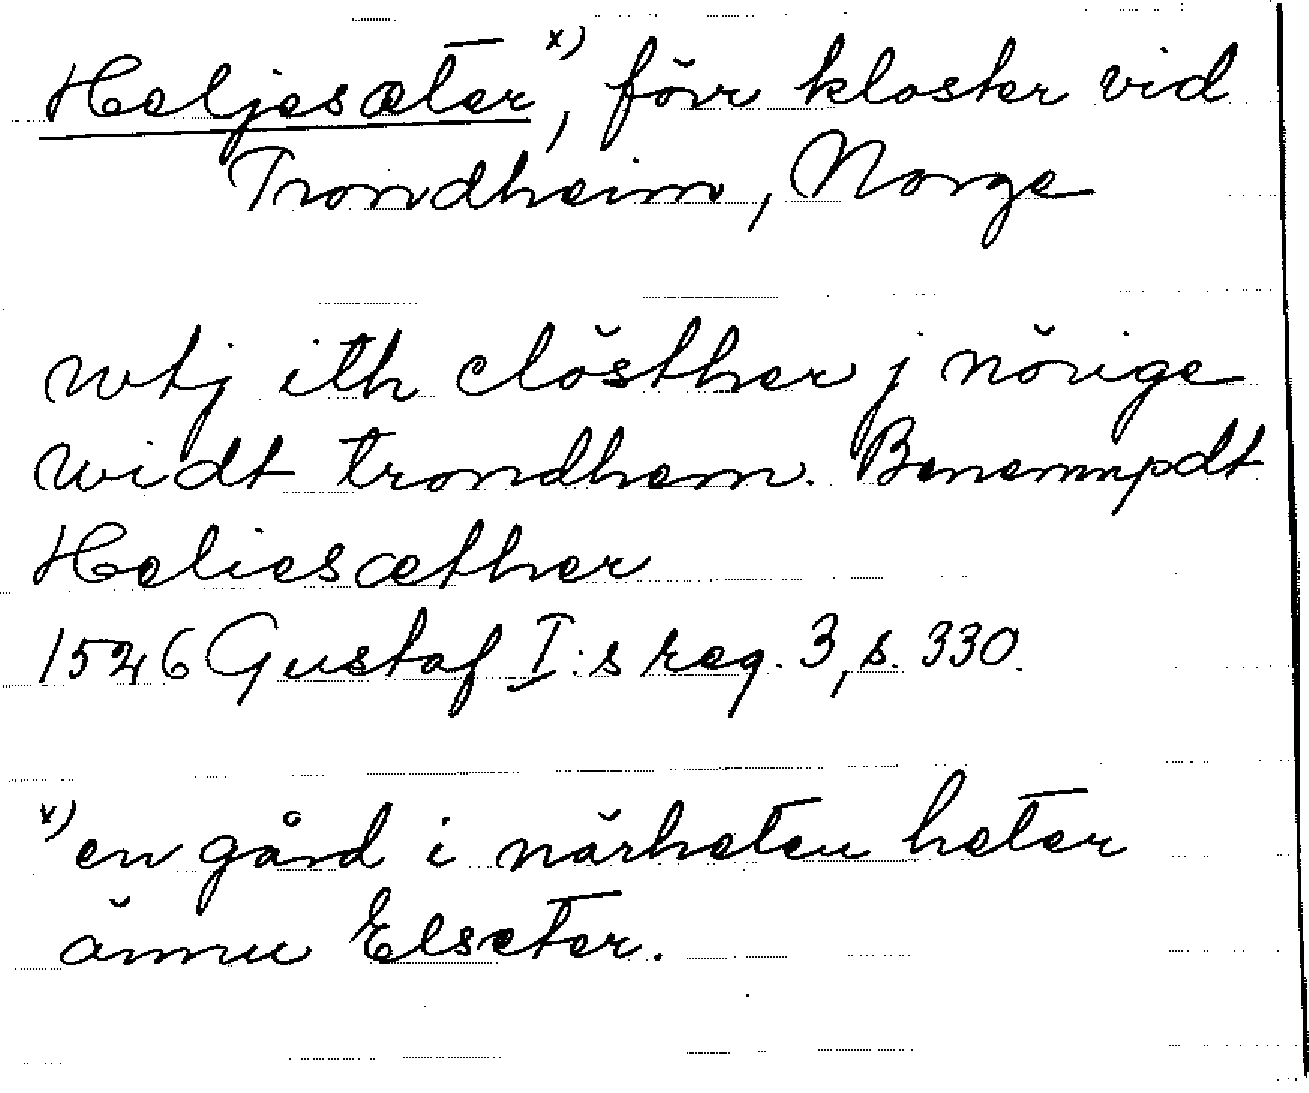 Heljesæter x), förr kloster vid
Trondheim, Norge
wtj ith clösther j nörige
widt trondhem. Benemmpdt
Heliesæther
1526 Gustaf I:s reg. 3, s. 330.
x) en gård i närheten heter
ännu Elseter.